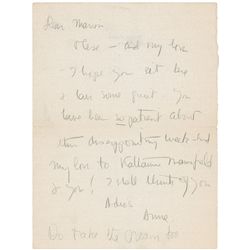 Dear Marion
These – and my love
I hope you eat
I have some quiet. You
have been so patient about
this disappointing week-end
my love to Kathanne Mansfield
& you! I shall think of you
Adios
Anne
Do take the cream